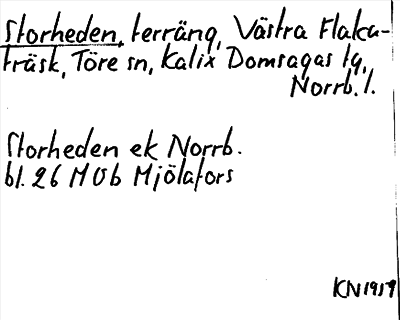 Storheden, terräng, Västra Flaka-
träsk, Töre sn, Kalix Domsagas tg,
Norrb. l.
Storheden ek Norrb.
bl. 26 MOb Mjölafors
KN 1959